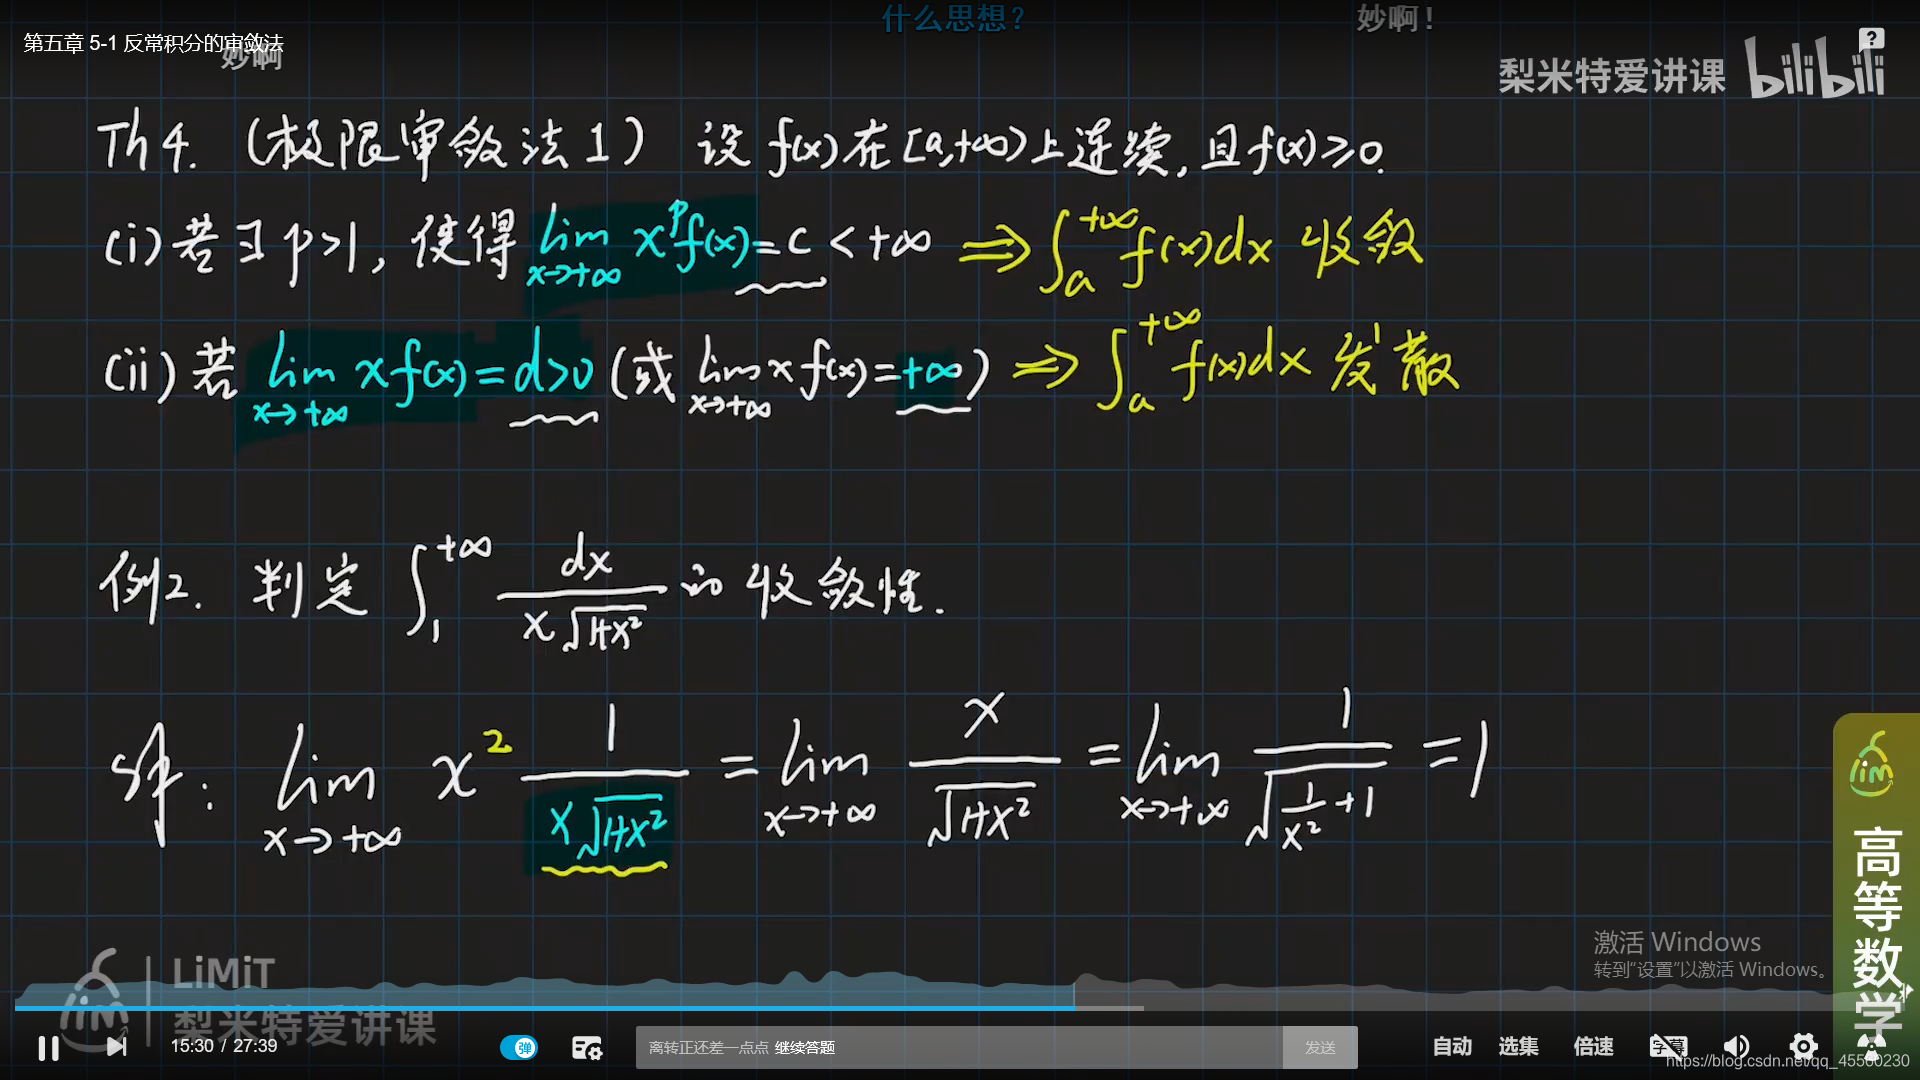 什么思想?
妙啊!
第五章 5-1 反常积分的审敛法
妙啊
梨米特爱讲课 bilibili
Th 4. (极限审敛法1) 设 f(x) 在 [a,+∞) 上连续, 且 f(x) ≥ 0.
(i) 若 ∃ p>1, 使得 lim x→+∞ x^p f(x) = c < +∞ ⇒ ∫_a^{+∞} f(x)dx 收敛
(ii) 若 lim x→+∞ x f(x) = d>0 (或 lim x→+∞ x f(x) = +∞) ⇒ ∫_a^{+∞} f(x)dx 发散
例2. 判定 ∫_1^{+∞} dx / (x√(1+x²)) 的收敛性.
解: lim x→+∞ x² 1/(x√(1+x²)) = lim x→+∞ x/√(1+x²) = lim x→+∞ 1/√(1/x²+1) = 1
lim
高等数学
激活 Windows
转到“设置”以激活 Windows。
LiMiT
梨米特爱讲课
15:30 / 27:39
弹
离转正还差一点点 继续答题
发送
自动 选集 倍速 字幕
https://blog.csdn.net/qq_45560230